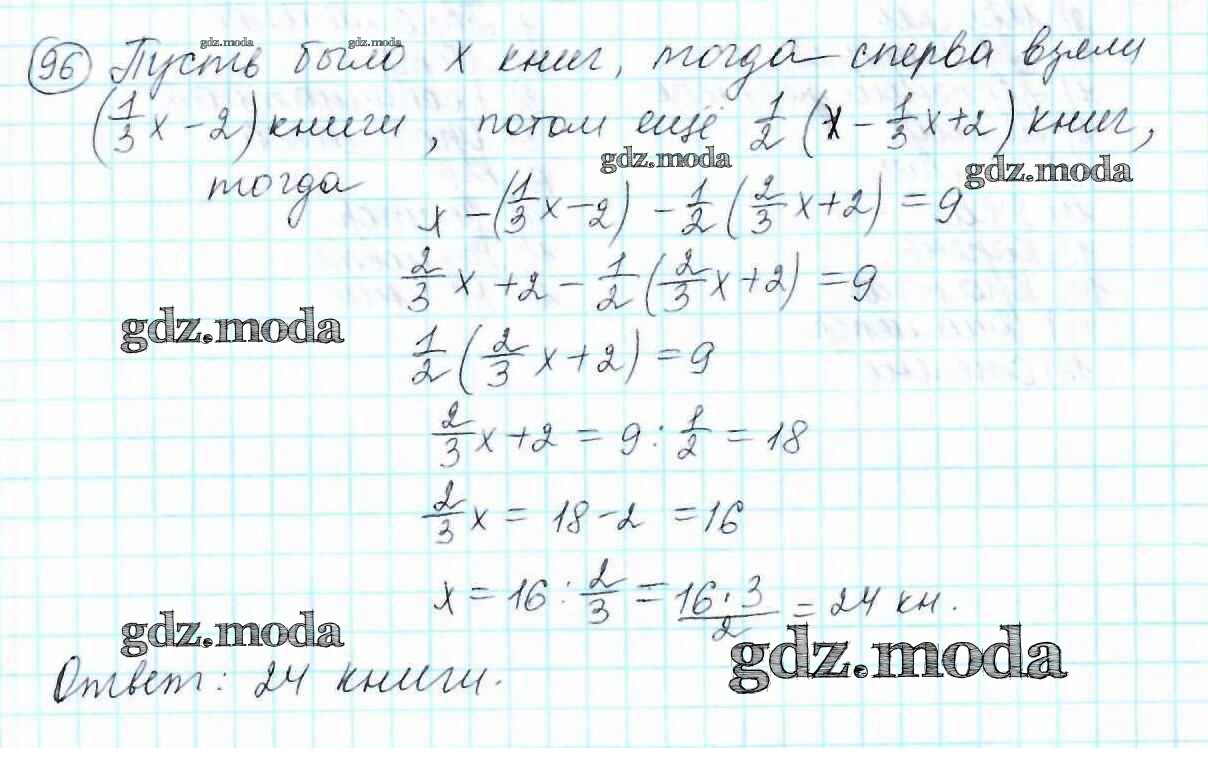 96 Пусть было x книг, тогда сперва взяли
(1/3 x - 2) книги, потом ещё 1/2 (x - 1/3 x + 2) книг,
тогда
x - (1/3 x - 2) - 1/2 (2/3 x + 2) = 9
2/3 x + 2 - 1/2 (2/3 x + 2) = 9
1/2 (2/3 x + 2) = 9
2/3 x + 2 = 9 : 1/2 = 18
2/3 x = 18 - 2 = 16
x = 16 : 2/3 = 16·3/2 = 24 кн.
Ответ: 24 книги.
gdz.moda
gdz.moda
gdz.moda
gdz.moda
gdz.moda
gdz.moda
gdz.moda